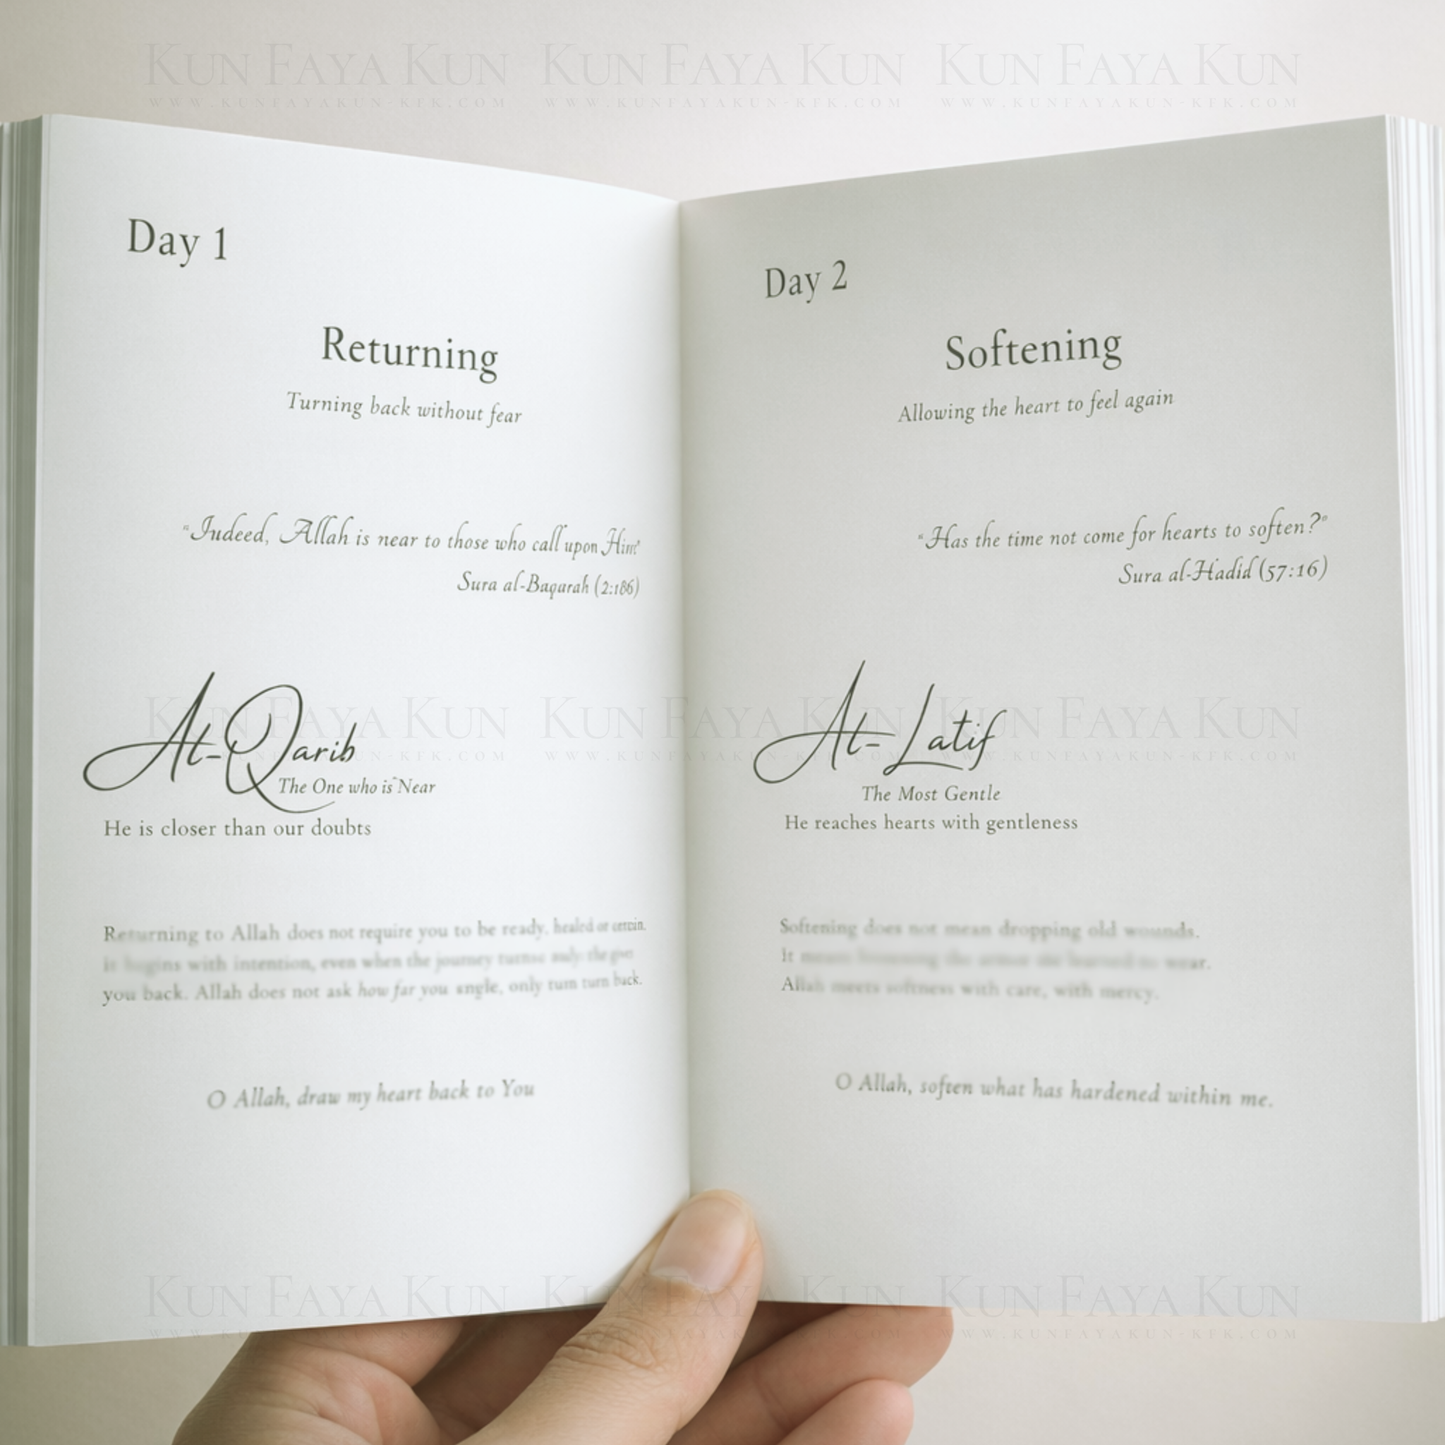 KUN FAYA KUN KUN FAYA KUN KUN FAYA KUN
WWW.KUNFAYAKUN-KFK.COM WWW.KUNFAYAKUN-KFK.COM WWW.KUNFAYAKUN-KFK.COM
Day 1
Returning
Turning back without fear
"Indeed, Allah is near to those who call upon Him"
Sura al-Baqarah (2:186)
Al-Qarib
The One who is Near
He is closer than our doubts
Returning to Allah does not require you to be ready, healed or certain.
with intention, even when the journey
you back. Allah does not ask how far you only turn turn back.
O Allah, draw my heart back to You
Day 2
Softening
Allowing the heart to feel again
"Has the time not come for hearts to soften?"
Sura al-Hadid (57:16)
Al-Latif
The Most Gentle
He reaches hearts with gentleness
Softening does not mean dropping old wounds.
It the armor to wear.
Allah meets softness with care, with mercy.
O Allah, soften what has hardened within me.
KUN FAYA KUN KUN FAYA KUN KUN FAYA KUN
WWW.KUNFAYAKUN-KFK.COM WWW.KUNFAYAKUN-KFK.COM WWW.KUNFAYAKUN-KFK.COM
KUN FAYA KUN KUN FAYA KUN KUN FAYA KUN
WWW.KUNFAYAKUN-KFK.COM WWW.KUNFAYAKUN-KFK.COM WWW.KUNFAYAKUN-KFK.COM